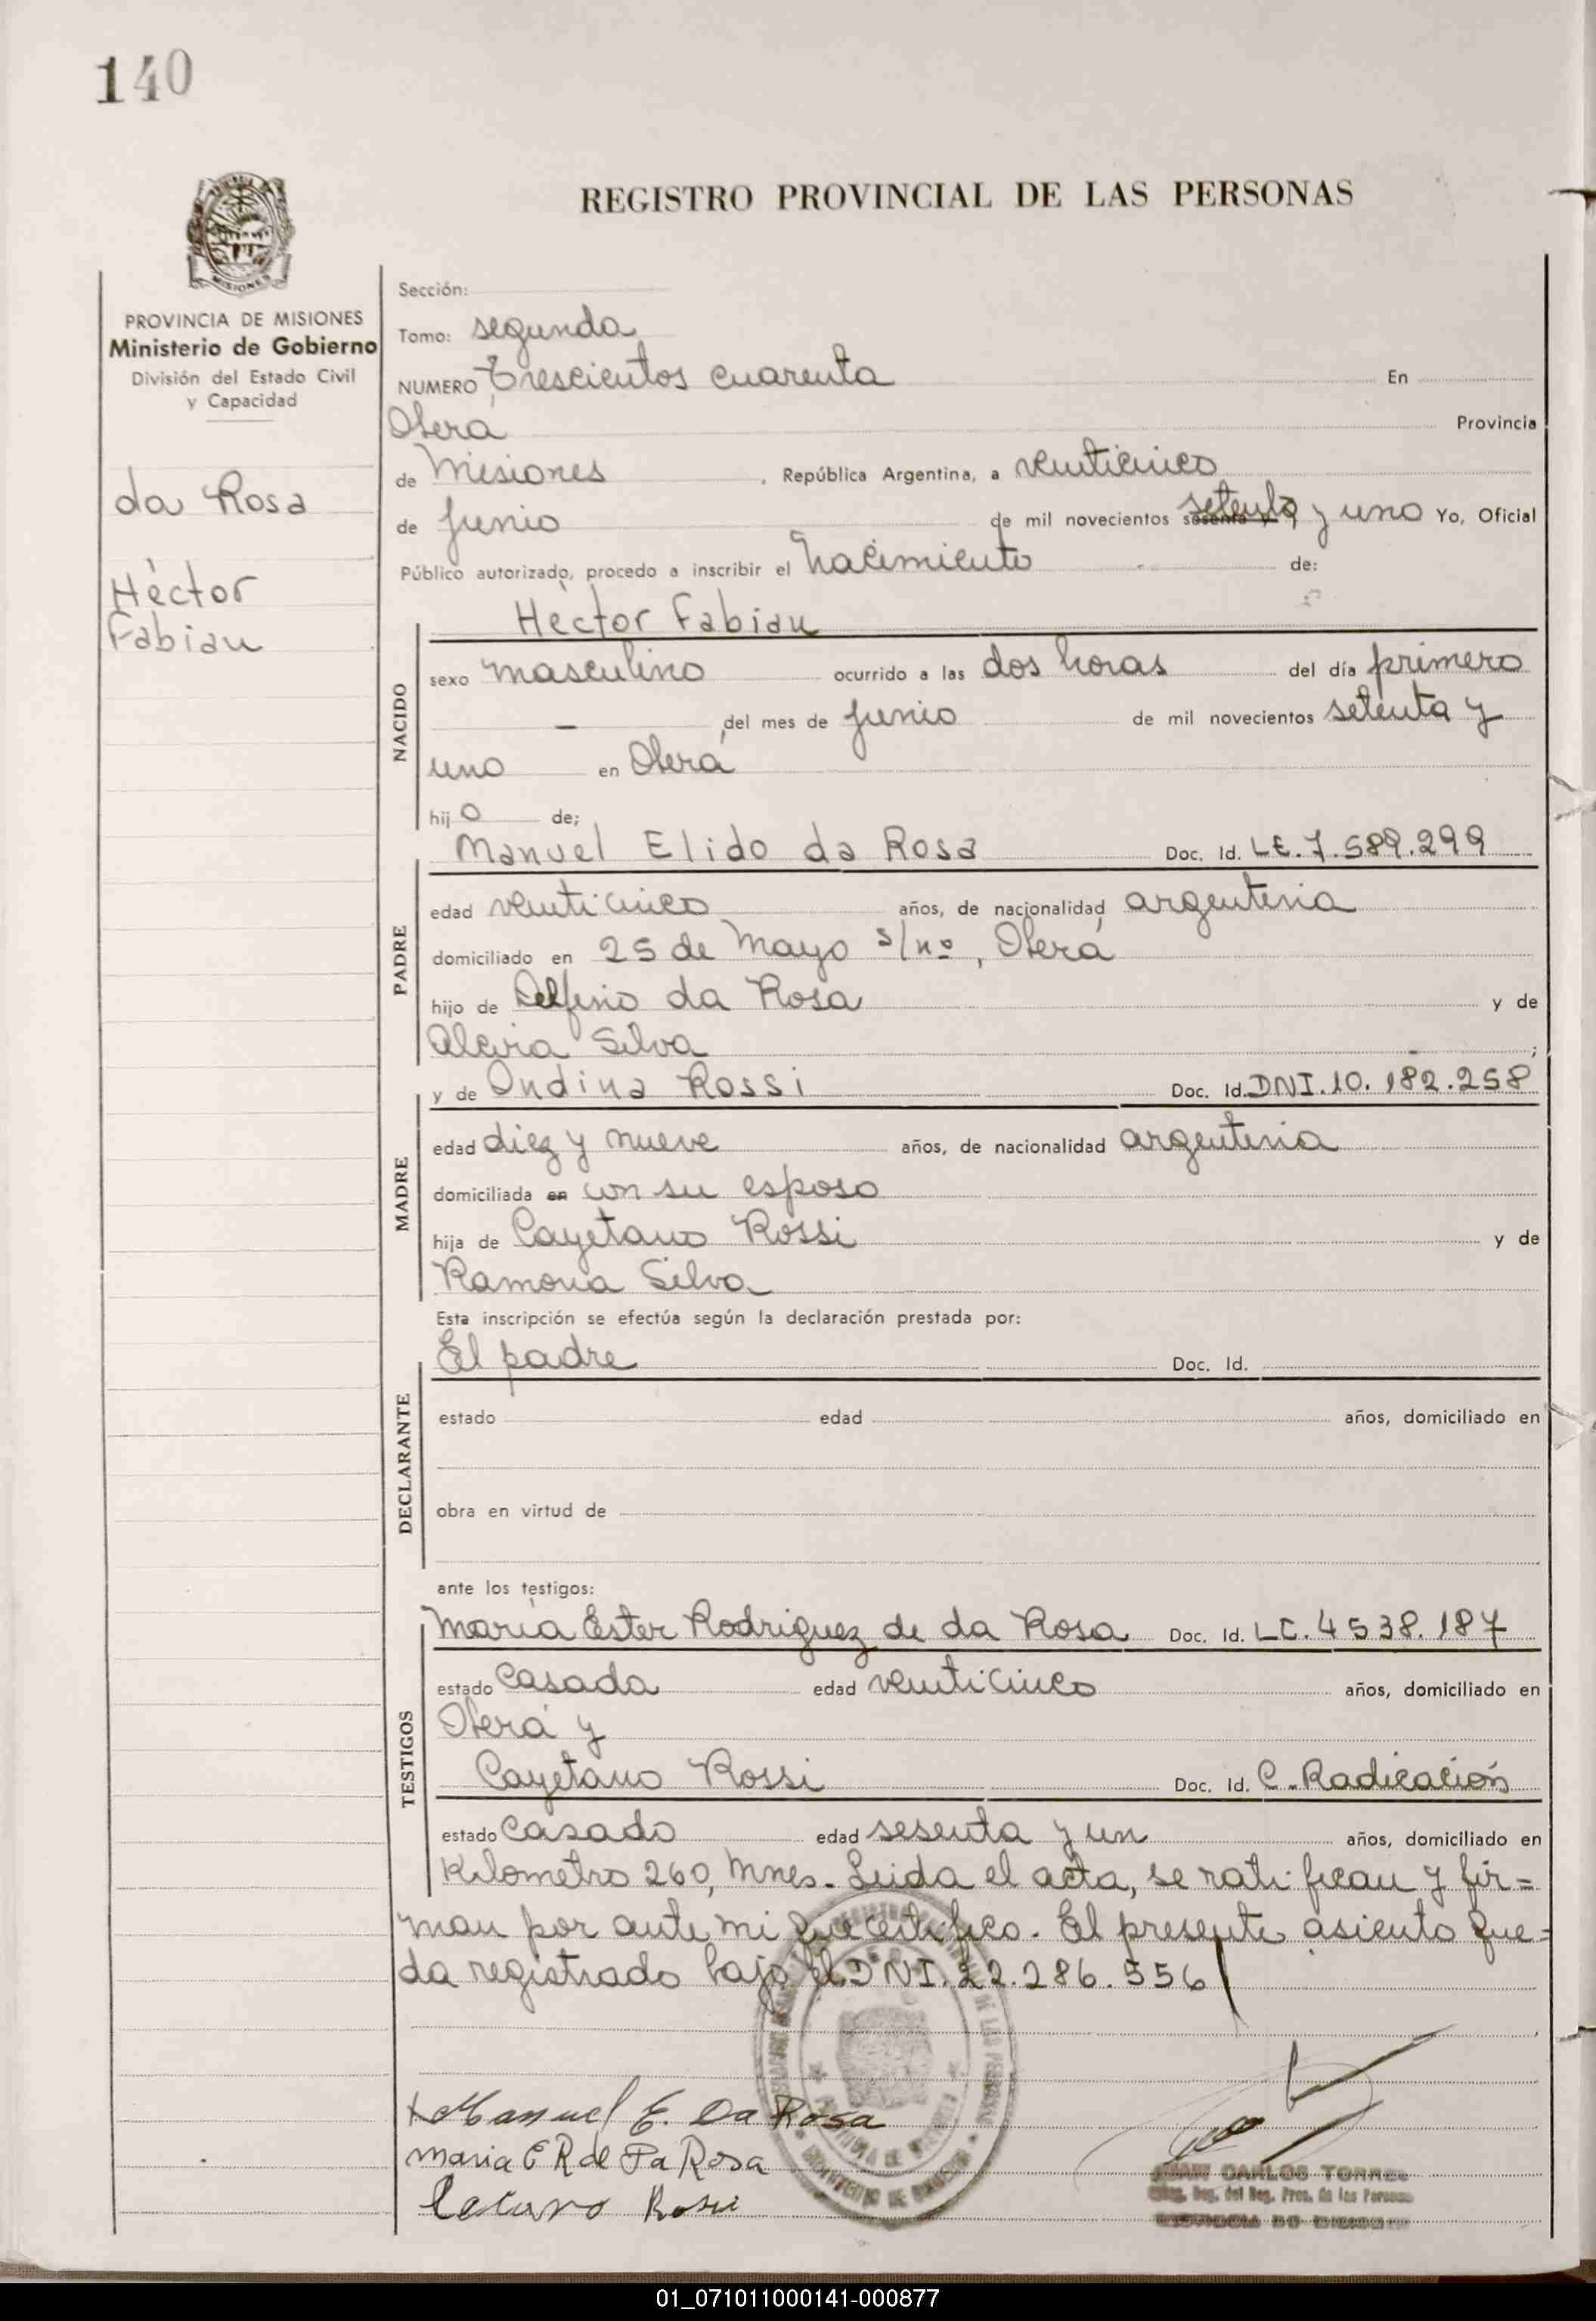 140
REGISTRO PROVINCIAL DE LAS PERSONAS
MISIONES
PROVINCIA DE MISIONES
Ministerio de Gobierno
División del Estado Civil
y Capacidad
da Rosa
Héctor
Fabian
Sección:
Tomo: segunda
NUMERO Trescientos cuarenta En
Oberá Provincia
de Misiones, República Argentina, a venticinco
de junio de mil novecientos sesenta setenta y uno Yo, Oficial
Público autorizado, procedo a inscribir el nacimiento de:
Héctor Fabian
NACIDO
sexo masculino ocurrido a las dos horas del día primero
— del mes de junio de mil novecientos setenta y
uno en Oberá
hijo de;
Manuel Elido da Rosa Doc. Id. LE. 7.589.299
PADRE
edad venticinco años, de nacionalidad argentina
domiciliado en 25 de Mayo s/nº, Oberá
hijo de Delfino da Rosa y de
Alcira Silva ;
y de Ondina Rossi Doc. Id. DNI. 10.182.258
MADRE
edad diez y nueve años, de nacionalidad argentina
domiciliada en con su esposo
hija de Cayetano Rossi y de
Ramona Silva
Esta inscripción se efectúa según la declaración prestada por:
El padre Doc. Id.
DECLARANTE
estado edad años, domiciliado en
obra en virtud de
ante los testigos:
María Ester Rodriguez de da Rosa Doc. Id. LC. 4538.187
TESTIGOS
estado casada edad venticinco años, domiciliado en
Oberá y
Cayetano Rossi Doc. Id. C. Radicación
estado casado edad sesenta y un años, domiciliado en
Kilometro 260, Mnes. Leida el acta, se ratifican y fir=
man por ante mi que certifico. El presente asiento que=
da registrado bajo el DNI. 22.286.556
Manuel E. Da Rosa
Maria E R de Da Rosa
Rossi
JUAN CARLOS TORRES
Reg. del Reg. Prov. de las Personas
PROVINCIA DE MISIONES
01_071011000141-000877